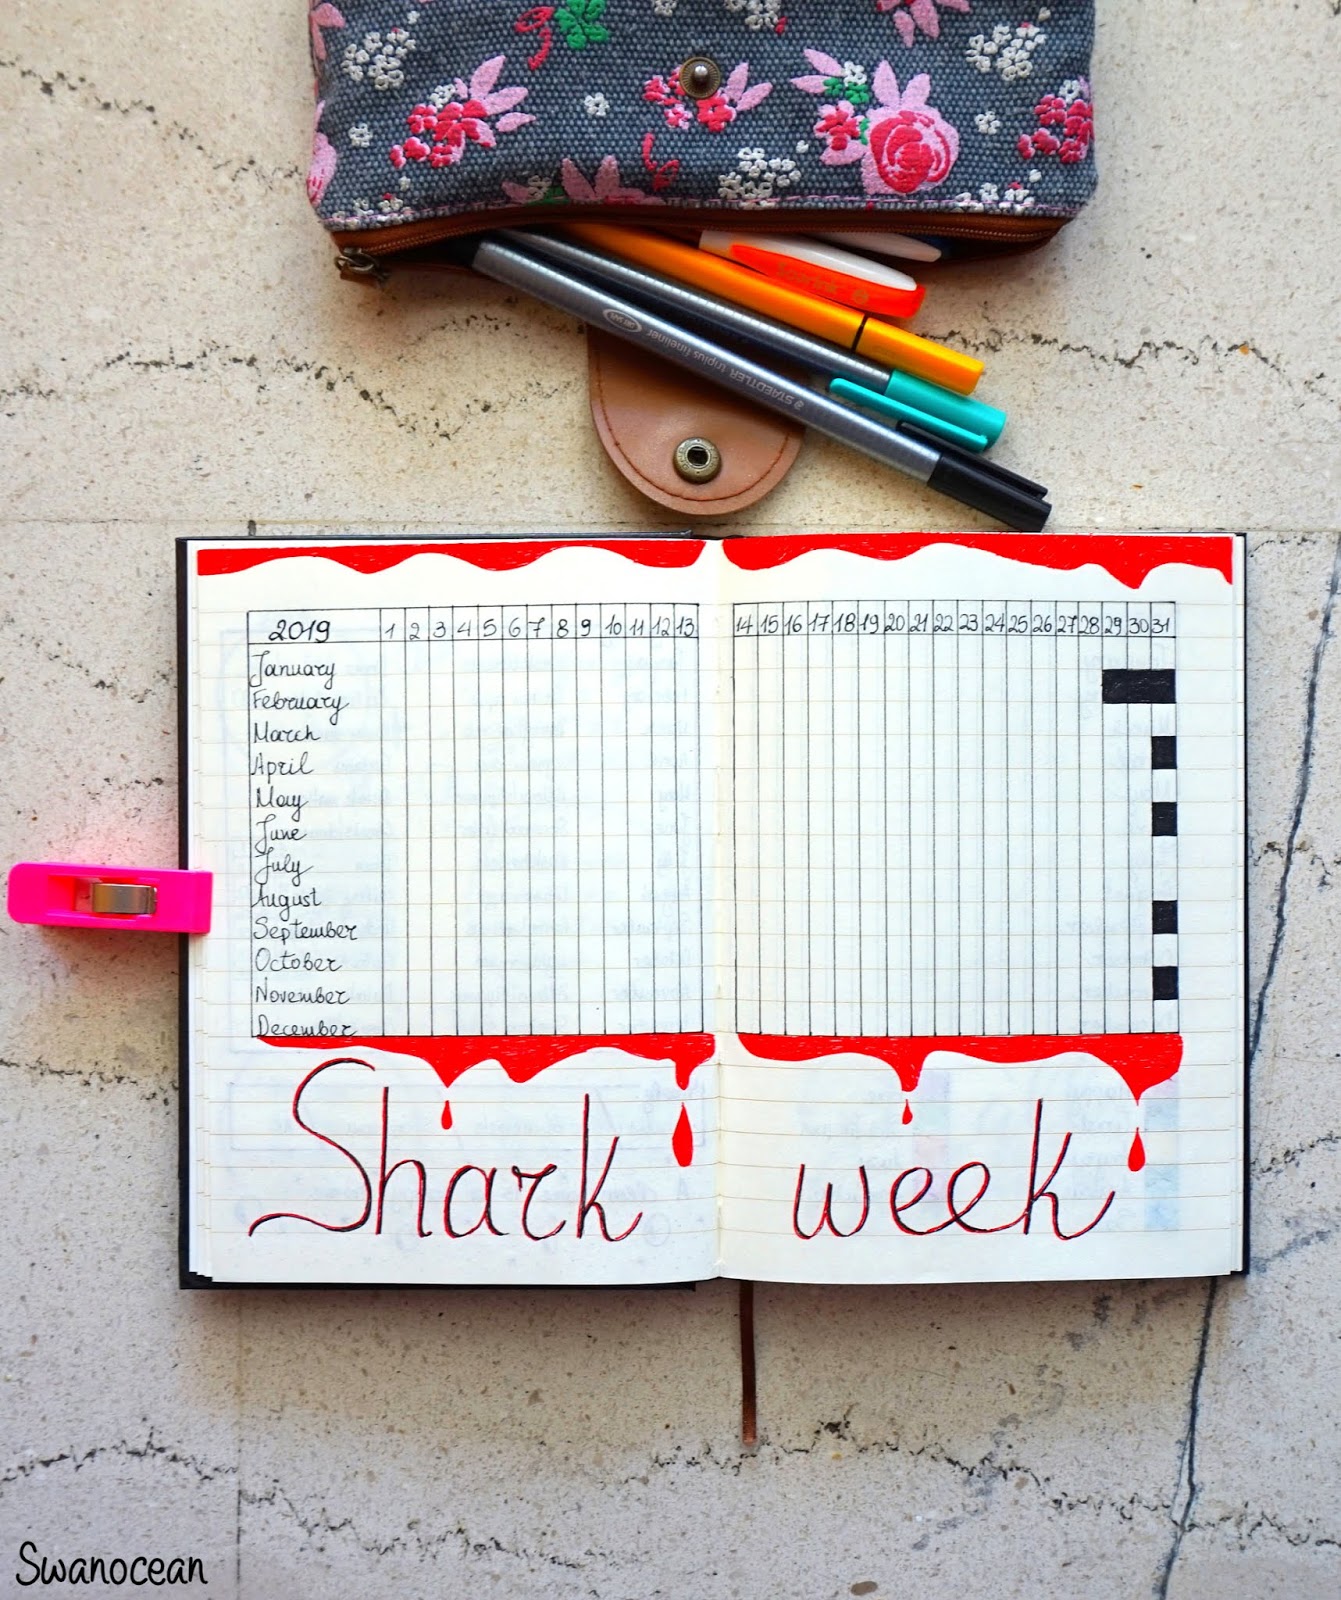 STAEDTLER triplus fineliner
2019 1 2 3 4 5 6 7 8 9 10 11 12 13 14 15 16 17 18 19 20 21 22 23 24 25 26 27 28 29 30 31
January
February
March
April
May
June
July
August
September
October
November
December
Shark week
Swanocean